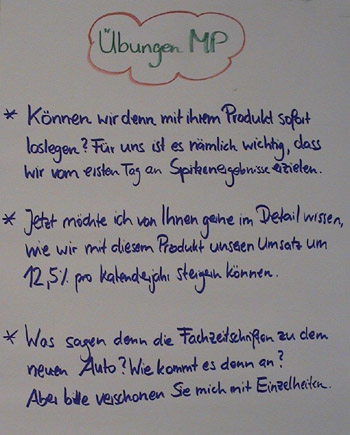 Übungen MP
* Können wir denn mit ihrem Produkt sofort
loslegen? Für uns ist es nämlich wichtig, dass
wir vom ersten Tag an Spitzenergebnisse erzielen.
* Jetzt möchte ich von Ihnen gerne im Detail wissen,
wie wir mit diesem Produkt unseren Umsatz um
12,5% pro Kalenderjahr steigern können.
* Was sagen denn die Fachzeitschriften zu dem
neuen Auto? Wie kommt es denn an?
Aber bitte verschonen Sie mich mit Einzelheiten.